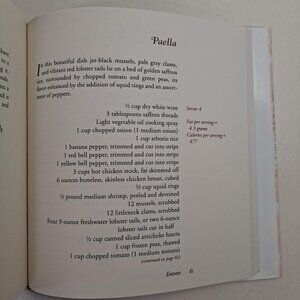 Paella
In this beautiful dish jet-black mussels, pale gray clams,
and vibrant red lobster tails lie on a bed of golden saffron
rice, surrounded by chopped tomato and green peas, its
flavor enhanced by the addition of squid rings and an assort-
ment of peppers.
½ cup dry white wine
3 tablespoons saffron threads
Light vegetable oil cooking spray
1 cup chopped onion (1 medium onion)
1 cup arborio rice
1 banana pepper, trimmed and cut into strips
1 red bell pepper, trimmed and cut into strips
1 yellow bell pepper, trimmed and cut into strips
3 cups hot chicken stock, fat skimmed off
6 ounces boneless, skinless chicken breast, cubed
½ cup squid rings
½ pound medium shrimp, peeled and deveined
12 mussels, scrubbed
12 littleneck clams, scrubbed
Four 3-ounce freshwater lobster tails, or two 6-ounce
lobster tails cut in half
½ cup canned sliced artichoke hearts
1 cup frozen peas, thawed
1 cup chopped tomato (1 medium tomato)
(continued on page 82)
Serves 4
Fat per serving =
4.3 grams
Calories per serving =
477
Entrees 81